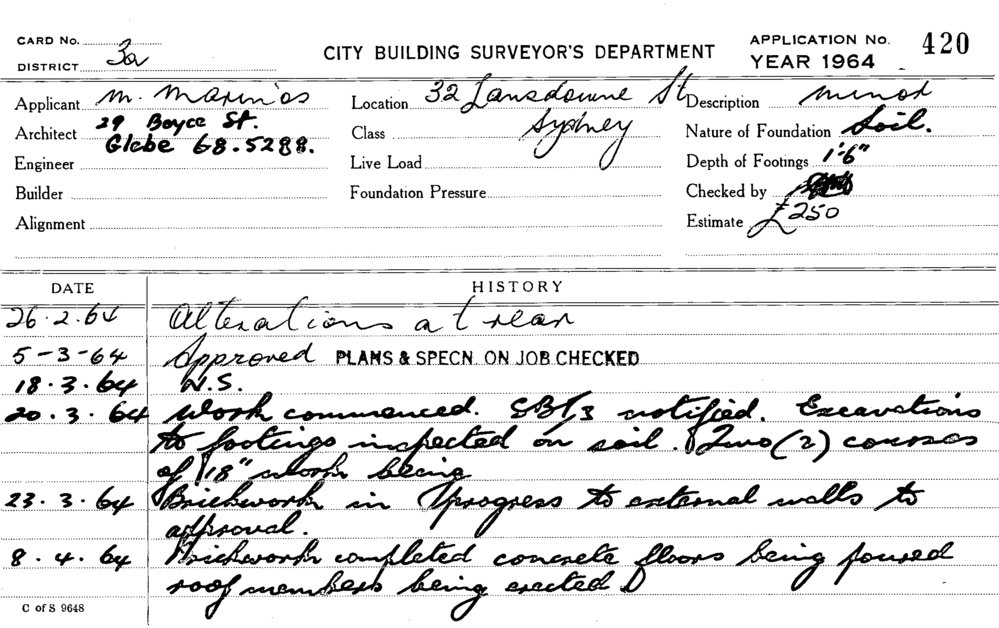 CARD No.
DISTRICT 3a
CITY BUILDING SURVEYOR'S DEPARTMENT
APPLICATION No. 420
YEAR 1964
Applicant M. Marinos
Location 32 Lansdowne St
Sydney
Description minor
Architect 29 Boyce St.
Glebe 68.5288.
Class
Nature of Foundation Soil.
Engineer
Live Load
Depth of Footings 1'-6"
Builder
Foundation Pressure
Checked by
Alignment
Estimate £250
DATE HISTORY
26.2.64 Alterations at rear
5-3-64 Approved PLANS & SPECN. ON JOB CHECKED
18.3.64 N.S.
20.3.64 Work commenced. SBI/3 notified. Excavations
to footings inspected on soil. Two (2) courses
of 18" work being
23.3.64 Brickwork in progress to external walls to
approval.
8.4.64 Brickwork completed concrete floors being poured
roof members being erected
C of S 9648